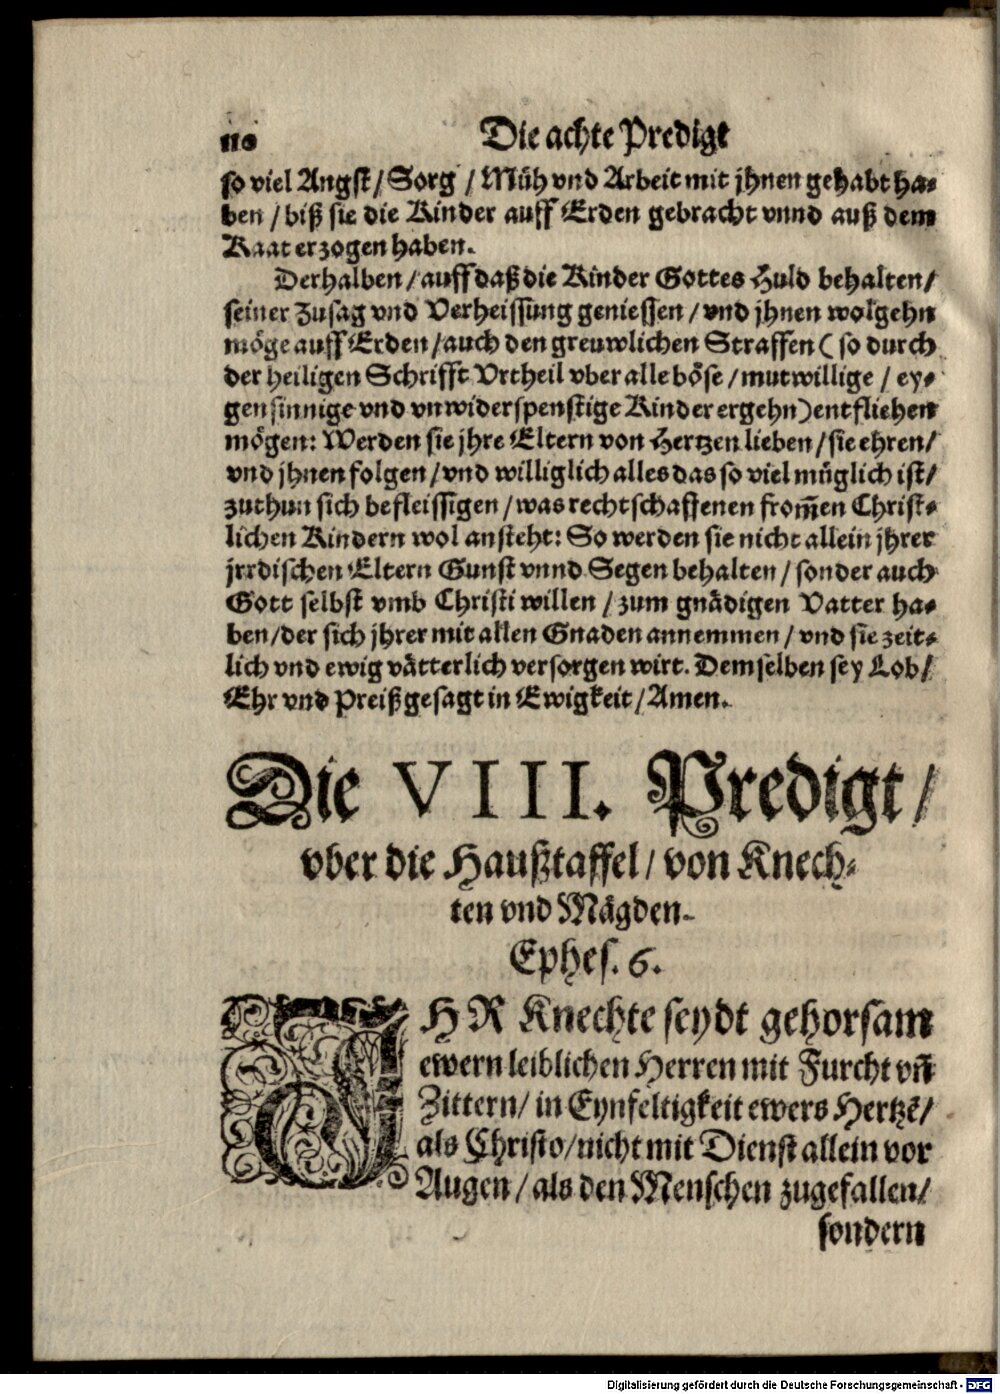 110 Die achte Predigt
so viel Angst / Sorg / Müh vnd Arbeit mit jhnen gehabt ha-
ben / biß sie die Kinder auff Erden gebracht vnnd auß dem
Kaat erzogen haben.
Derhalben / auff daß die Kinder Gottes Huld behalten /
seiner Zusag vnd Verheissung geniessen / vnd jhnen wolgehn
möge auff Erden / auch den grewlichen Straffen ( so durch
der heiligen Schrifft Vrtheil vber alle böse / mutwillige / ey-
gensinnige vnd vnwiderspenstige Kinder ergehn ) entfliehen
mögen: Werden sie jhre Eltern von Hertzen lieben / sie ehren /
vnd jhnen folgen / vnd williglich alles das so viel müglich ist /
zuthun sich befleissigen / was rechtschaffenen from̃en Christ-
lichen Kindern wol ansteht: So werden sie nicht allein jhrer
jrrdischen Eltern Gunst vnnd Segen behalten / sonder auch
Gott selbst vmb Christi willen / zum gnädigen Vatter ha-
ben / der sich jhrer mit allen Gnaden annemmen / vnd sie zeit-
lich vnd ewig vätterlich versorgen wirt. Demselben sey Lob /
Ehr vnd Preiß gesagt in Ewigkeit / Amen.
Die VIII. Predigt /
vber die Haußtaffel / von Knech-
ten vnd Mägden.
Ephes. 6.
IHR Knechte seydt gehorsam
ewern leiblichen Herren mit Furcht vñ
Zittern / in Eynfeltigkeit ewers Hertzẽ /
als Christo / nicht mit Dienst allein vor
Augen / als den Menschen zugefallen /
sondern
Digitalisierung gefördert durch die Deutsche Forschungsgemeinschaft - DFG